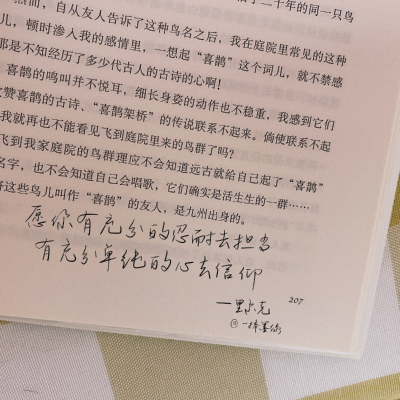 二十年的同一只鸟
然而，自从友人告诉了这种鸟名之后，我在庭院里常见的这种
儿，顿时渗入我的感情里，一想起“喜鹊”这个词儿，就不禁感
那是不知经历了多少代古人的古诗的心啊！
喜鹊的鸣叫并不悦耳，细长身姿的动作也不稳重，我感到它们
欢赞喜鹊的古诗、“喜鹊架桥”的传说联系不起来。倘使联系不起
我就再也不能看见飞到庭院里来的鸟群了吗？
飞到我家庭院的鸟群理应不会知道远古就给自己起了“喜鹊”
名字，也不会知道自己会唱歌，它们确实是活生生的一群……
将这些鸟儿叫作“喜鹊”的友人，是九州出身的。
愿你有充分的忍耐去担当
有充分单纯的心去信仰
一里尔克
207